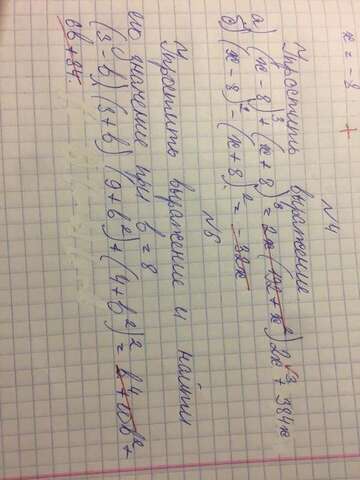 x = -8 +
№4
Упростить выражение
а) (x-8)³+(x+8)³ = 2x(192+x²) 2x³+384x
б) (x-8)²-(x+8)² = -32x
№6
Упростить выражение и найти
его значение при b=8
(3-b)(3+b)(9+b²)+(4+b²)² =